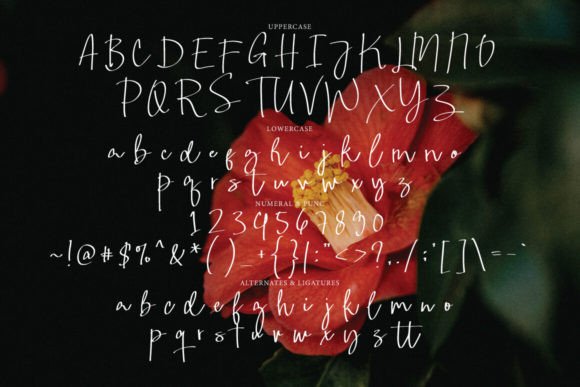 UPPERCASE
A B C D E F G H I J K L M N O
P Q R S T U V W X Y Z
LOWERCASE
a b c d e f g h i j k l m n o
p q r s t u v w x y z
NUMERAL & PUNC
1 2 3 4 5 6 7 8 9 0
~ ! @ # $ % ^ & * ( ) _ + { } | : " < > ? , . / ; ' [ ] \ = - `
ALTERNATES & LIGATURES
a b c d e f g h i j k l m n o
p q r s t u v w x y z tt